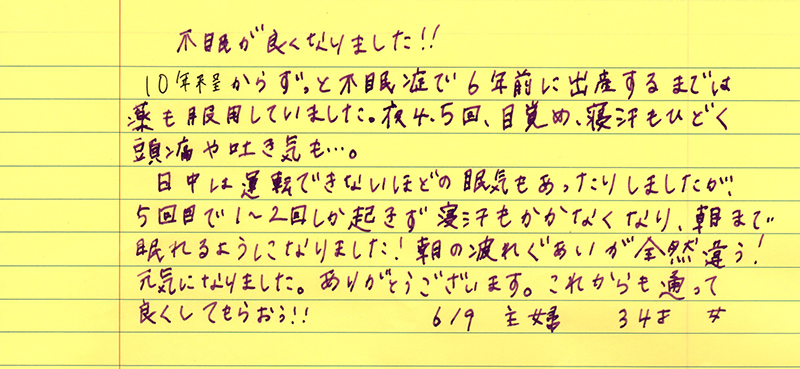 不眠が良くなりました!!
10年程からずっと不眠症で6年前に出産するまでは
薬も服用していました。夜4.5回、目覚め、寝汗もひどく
頭痛や吐き気も…。
日中は運転できないほどの眠気もあったりしましたが、
5回目で1〜2回しか起きず寝汗もかかなくなり、朝まで
眠れるようになりました!朝の疲れぐあいが全然違う!
元気になりました。ありがとうございます。これからも通って
良くしてもらおう!!　6/9　主婦　34才　女